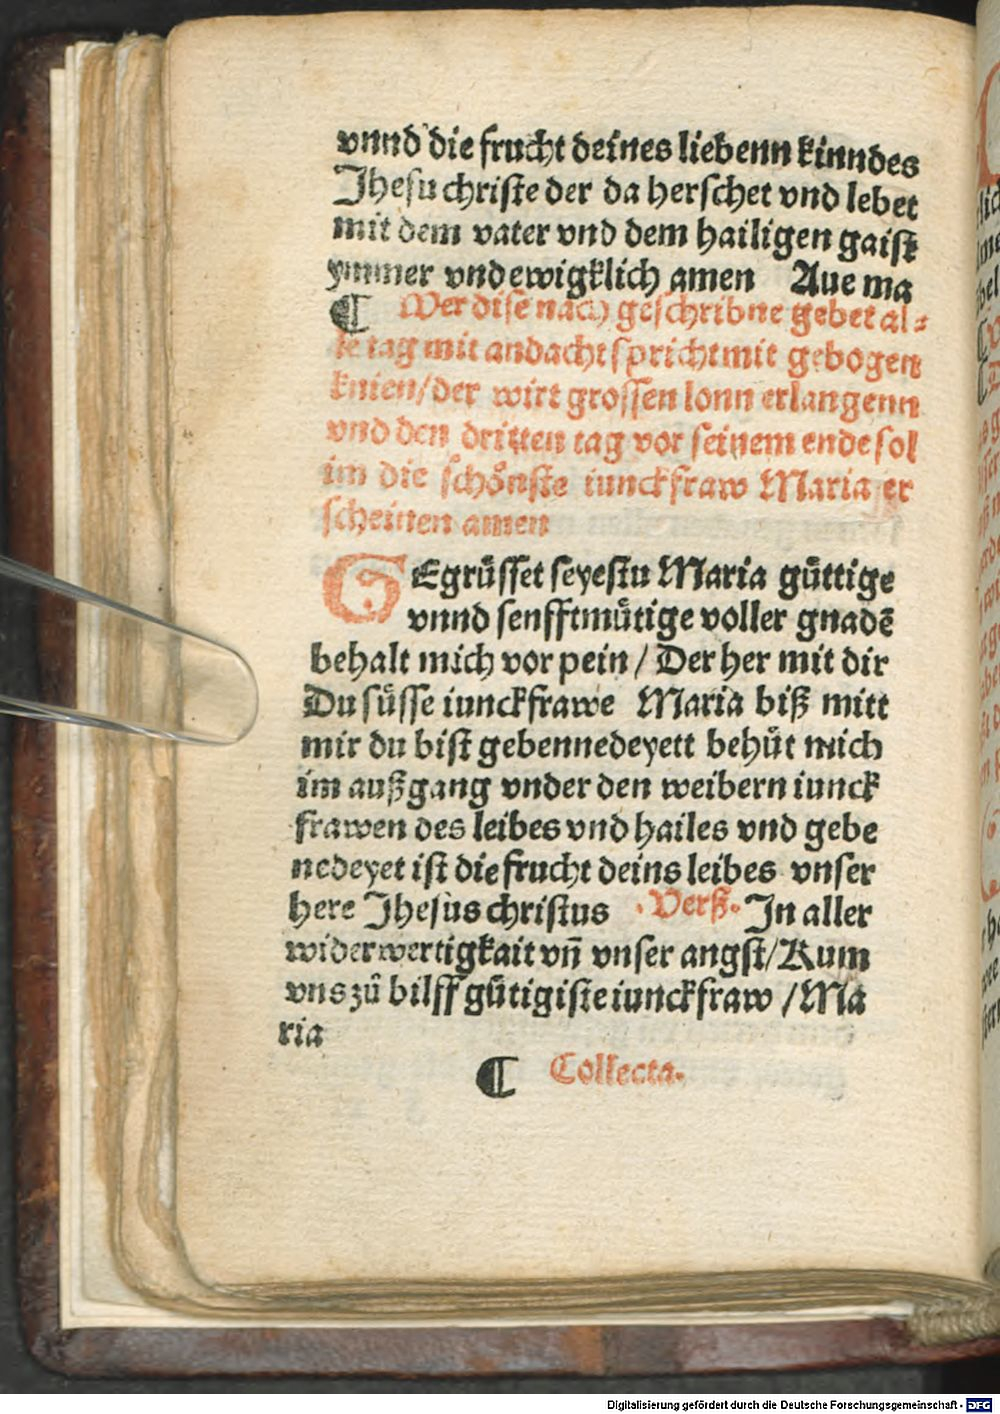 vnnd die frucht deines liebenn kinndes
Jhesu christe der da herschet vnd lebet
mit dem vater vnd dem hailigen gaist
ymmer vnd ewigklich amen Aue ma
¶ Wer dise nach geschribne gebet al⸗
le tag mit andacht spricht mit gebogen
knien/der wirt grossen lonn erlangenn
vnd den dritten tag vor seinem ende sol
im die schoͤnste iunckfraw Maria er
scheinen amen
GEgruͤsset seyestu Maria guͤttige
vnnd senfftmuͤtige voller gnadē
behalt mich vor pein / Der her mit dir
Du suͤsse iunckfrawe Maria biß mitt
mir du bist gebennedeyett behuͤt mich
im außgang vnder den weibern iunck
frawen des leibes vnd hailes vnd gebe
nedeyet ist die frucht deins leibes vnser
here Jhesus christus .Verß. In aller
widerwertigkait vn̄ vnser angst/Kum
vns zů hilff guͤtigiste iunckfraw /Ma
ria
¶ Collecta.
Digitalisierung gefördert durch die Deutsche Forschungsgemeinschaft - DFG